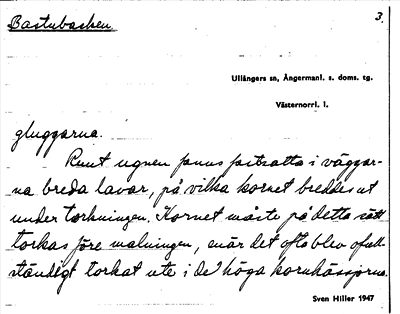 Bastubacken.
3.
Ullångers sn, Ångermanl. s. doms. tg.
Västernorrl. l.
gluggarna.
Runt ugnen funns fastsatta i väggar-
na breda lavar, på vilka kornet breddes ut
under torkningen. Kornet måste på detta sätt
torkas före malningen, enär det ofta blev ofull-
ständigt torkat ute i de höga kornhässjorna.
Sven Hiller 1947